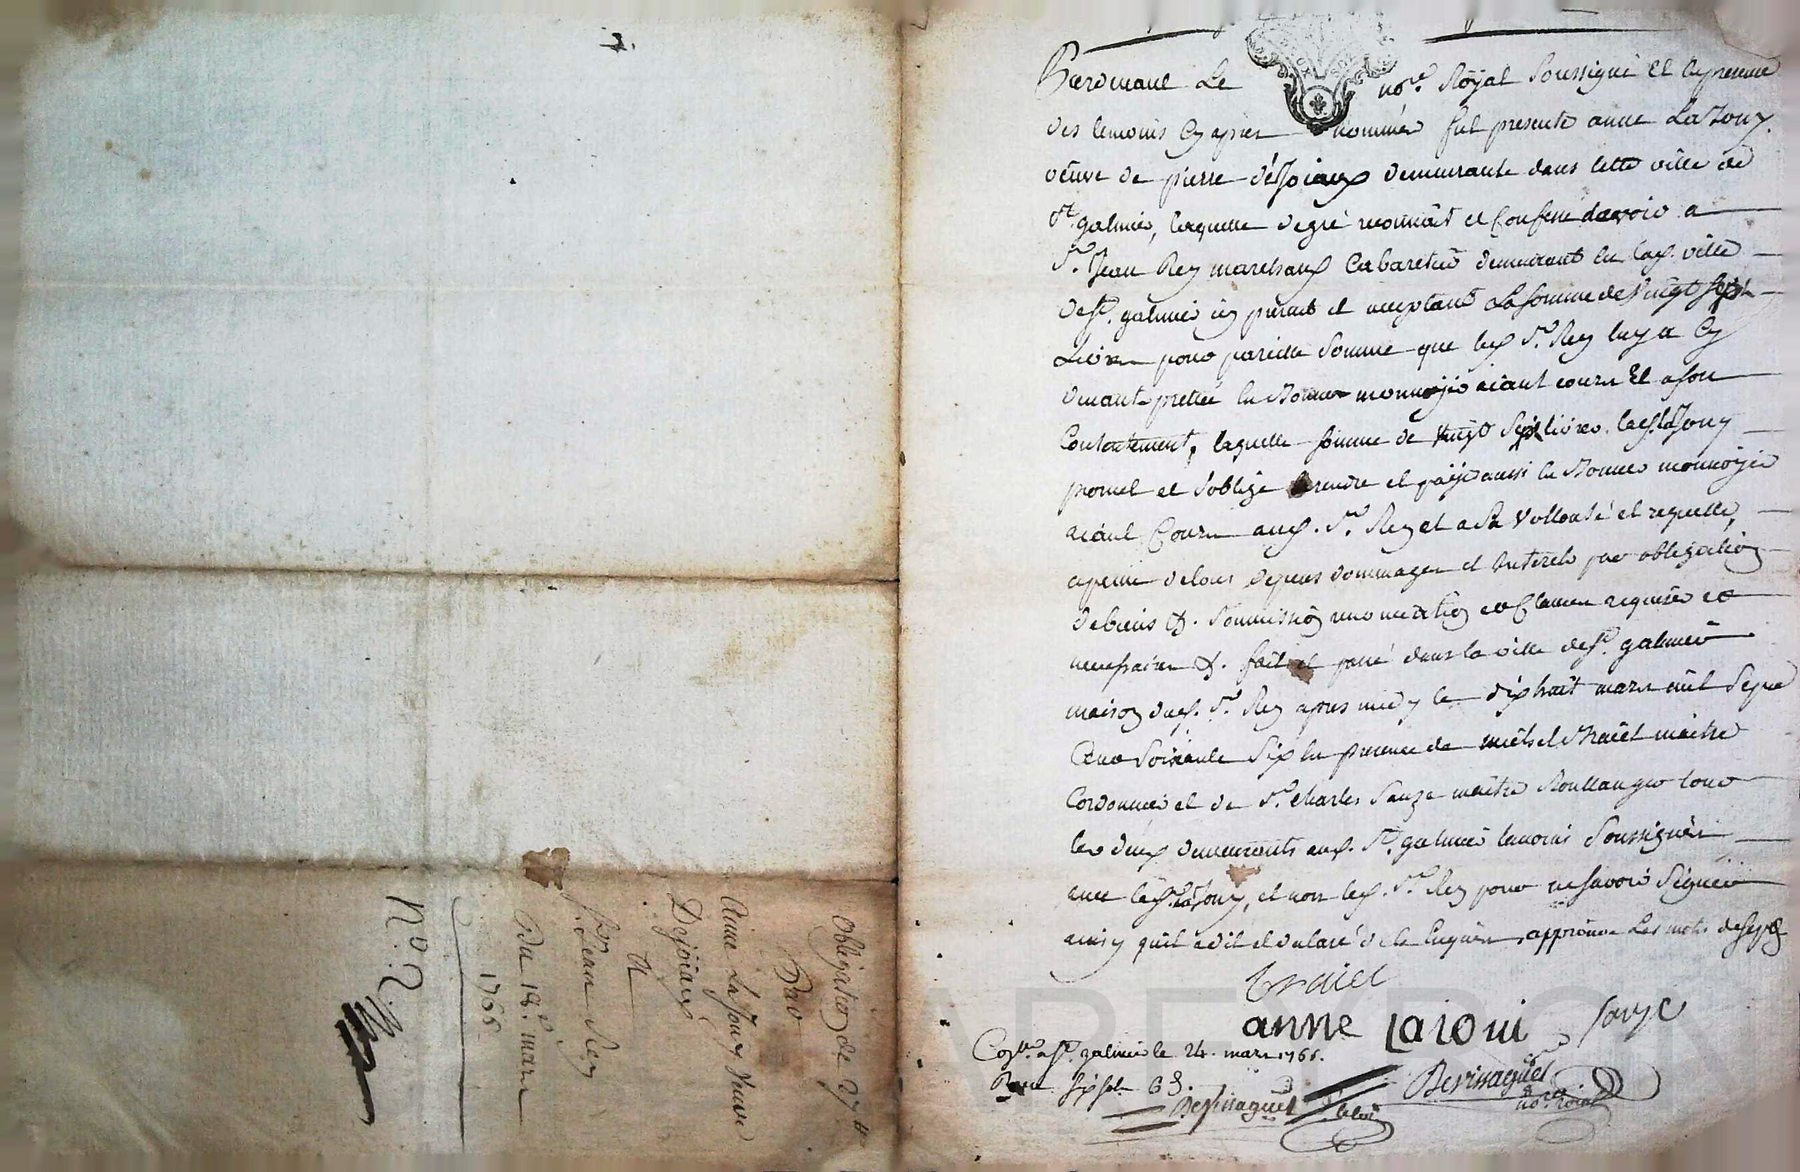 Pardevant Le no.re Royal Soussigné Et En presence
des temoins Cy apres nommés fut presente anne LaJouy
veuve de pierre déJoiaux demeurante dans cette ville de
St. galmier, laquelle degré reconnait et Confesse devoir a
Sr. Jean Rey marchand Cabaretier demeurant en lad. ville
de St. galmier icy present et acceptant La somme de Vingt sept
Livres pour pareille Somme que led. Sr. Rey luy a Cy
devant prettée en Bonne monnoye aiant cours Et a son
Contentement, laquelle somme de Vingt Sept livres lad. laJouy
promet et s'oblige rendre et payer aussi en Bonne monnoye
aiant Cours aud. Sr. Rey et a Sa Vollonté et requette,
a peine de tous depens dommages et Interets par obligation
de biens &. Soumission renonciation et Clauses requises et
necessaires &. fait et passé dans la ville de St. galmier
maison dud. Sr. Rey apres midy le dixhuit mars mil Sept
Cens Soixante Six En presence de michel Traict maitre
Cordonnier et de Sr. Charles Sauze maitre Boullanger tous
les deux demeurants aud. St. galmier temoins Soussignés
avec lad. LaJouy, et non led. Sr. Rey pour ne Savoir Signer
ainsy quil a dit et declaré de ce Enquis, approuvé Les mots de sept
traict
anne Laioui Sauze
Con.lle a St. galmier le 24. mars 1766.
Reçu six sols 6 d.
Bessaguet
no.re roial
Obligation de 27 #
Par
Anne LaJouy Veuve
Dejoiaux
A
Sr. Jean Rey
Du 18e. mars
1766
N°. 2.